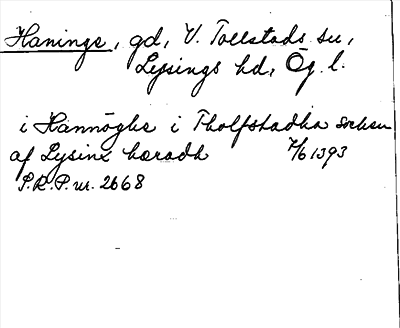 Hanings, gd, V. Tollstads sn,
Lysings hd, Ög. l.
i Hannöghs i Tholfstadha sochen
af Lysinx hæradh 7/6 1393
S.R.P. nr. 2668